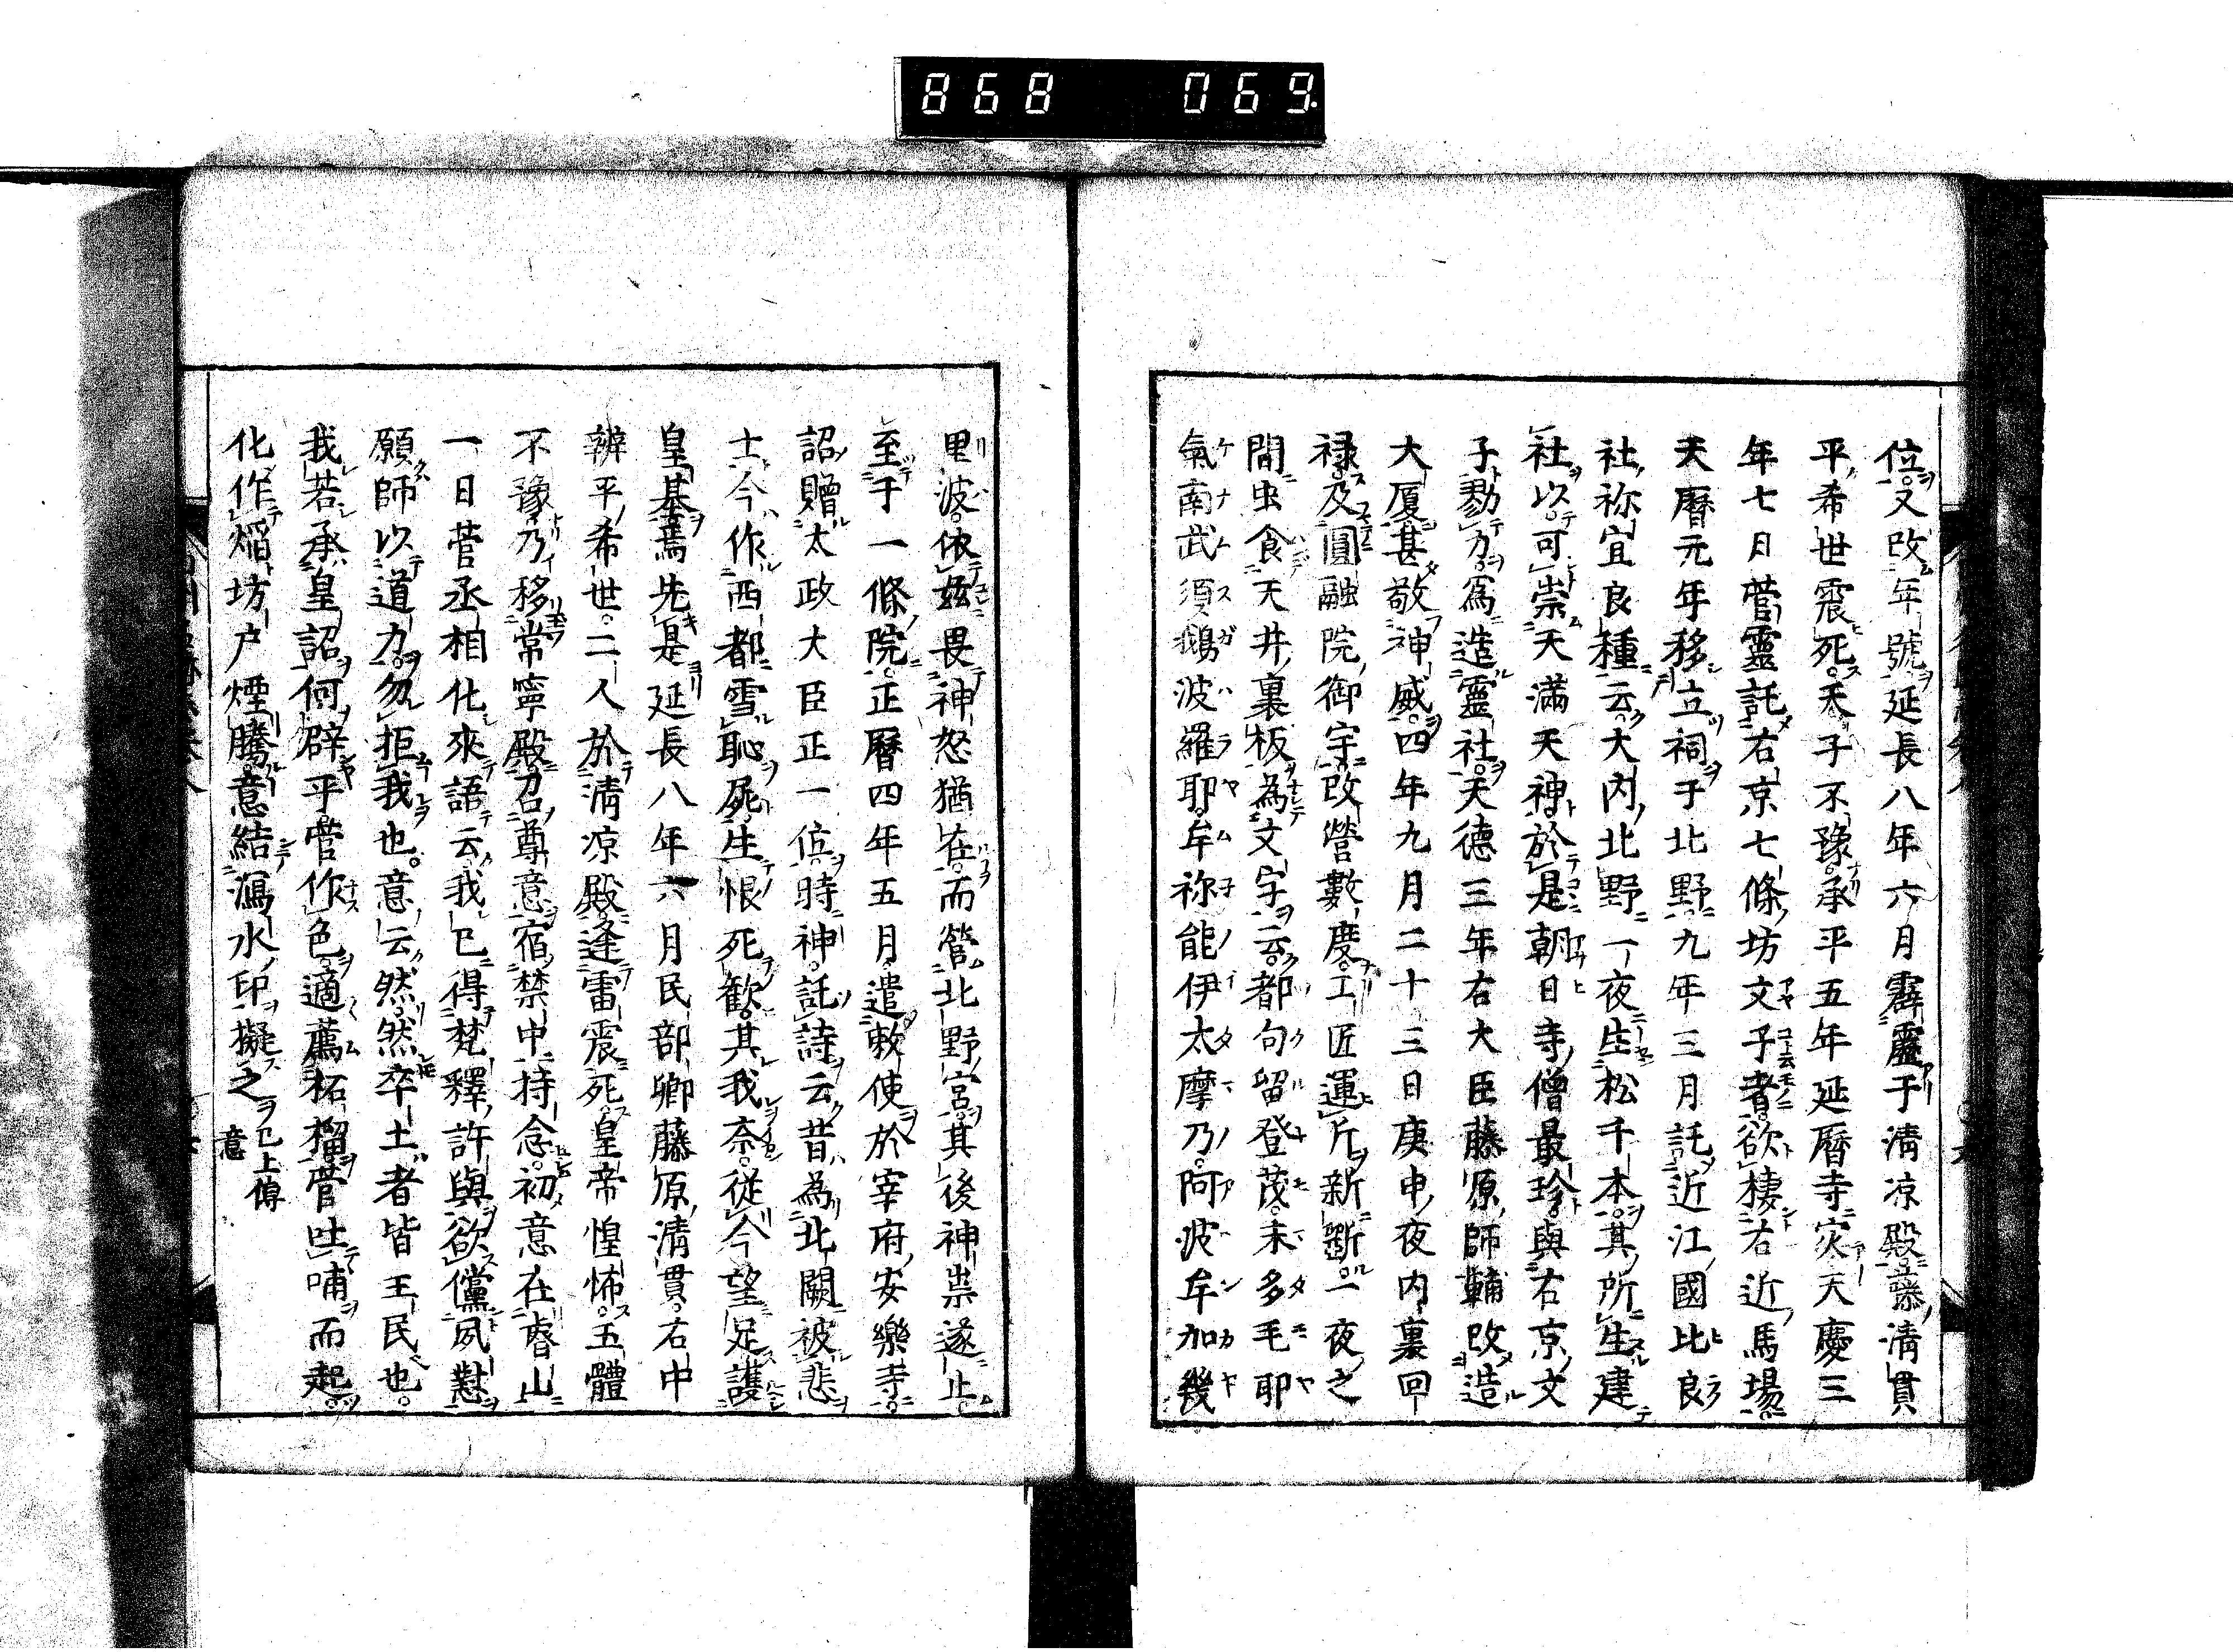 868 069.
位又改年號延長八年六月霹靂于淸凉殿藤淸貫
平希世震死天子不豫承平五年延曆寺灾天慶三
年七月菅靈託右京七條坊文子者欲棲右近馬場
天曆元年移立祠于北野九年三月託近江國比良
社祢宜良種云大内北野一夜生松千本其所生建
社以可崇天滿天神於是朝日寺僧最珍與右京文
子勠力爲造靈社天德三年右大臣藤原師輔改造
大厦甚敬神威四年九月二十三日庚申夜内裏回
禄及圓融院御宇改營數度工匠運斤新斲一夜之
間虫食天井裏板為文字云都句留登茂末多毛耶
氣南武須鵝波羅耶牟祢能伊太摩乃阿波牟加幾
里波依茲畏神怒猶在而營北野宮其後神祟遂止
至于一條院正曆四年五月遣敕使於宰府安樂寺
詔贈太政大臣正一位時神託詩云昔為北闕被悲
士今作西都雪恥屍生恨死歡其我奈從今望足護
皇基焉先是延長八年六月民部卿藤原淸貫右中
辨平希世二人於淸凉殿逢雷震死皇帝惶怖玉體
不豫乃移常寧殿召尊意宿禁中持念初意在睿山
一日菅丞相化來語云我已得梵釋許與欲償夙懟
願師以道力勿拒我也意云然然卒土者皆王民也
我若承皇詔何辟乎菅作色適薦柘榴菅吐哺而起
化作焰坊户煙騰意結灑水印擬之已上傳意